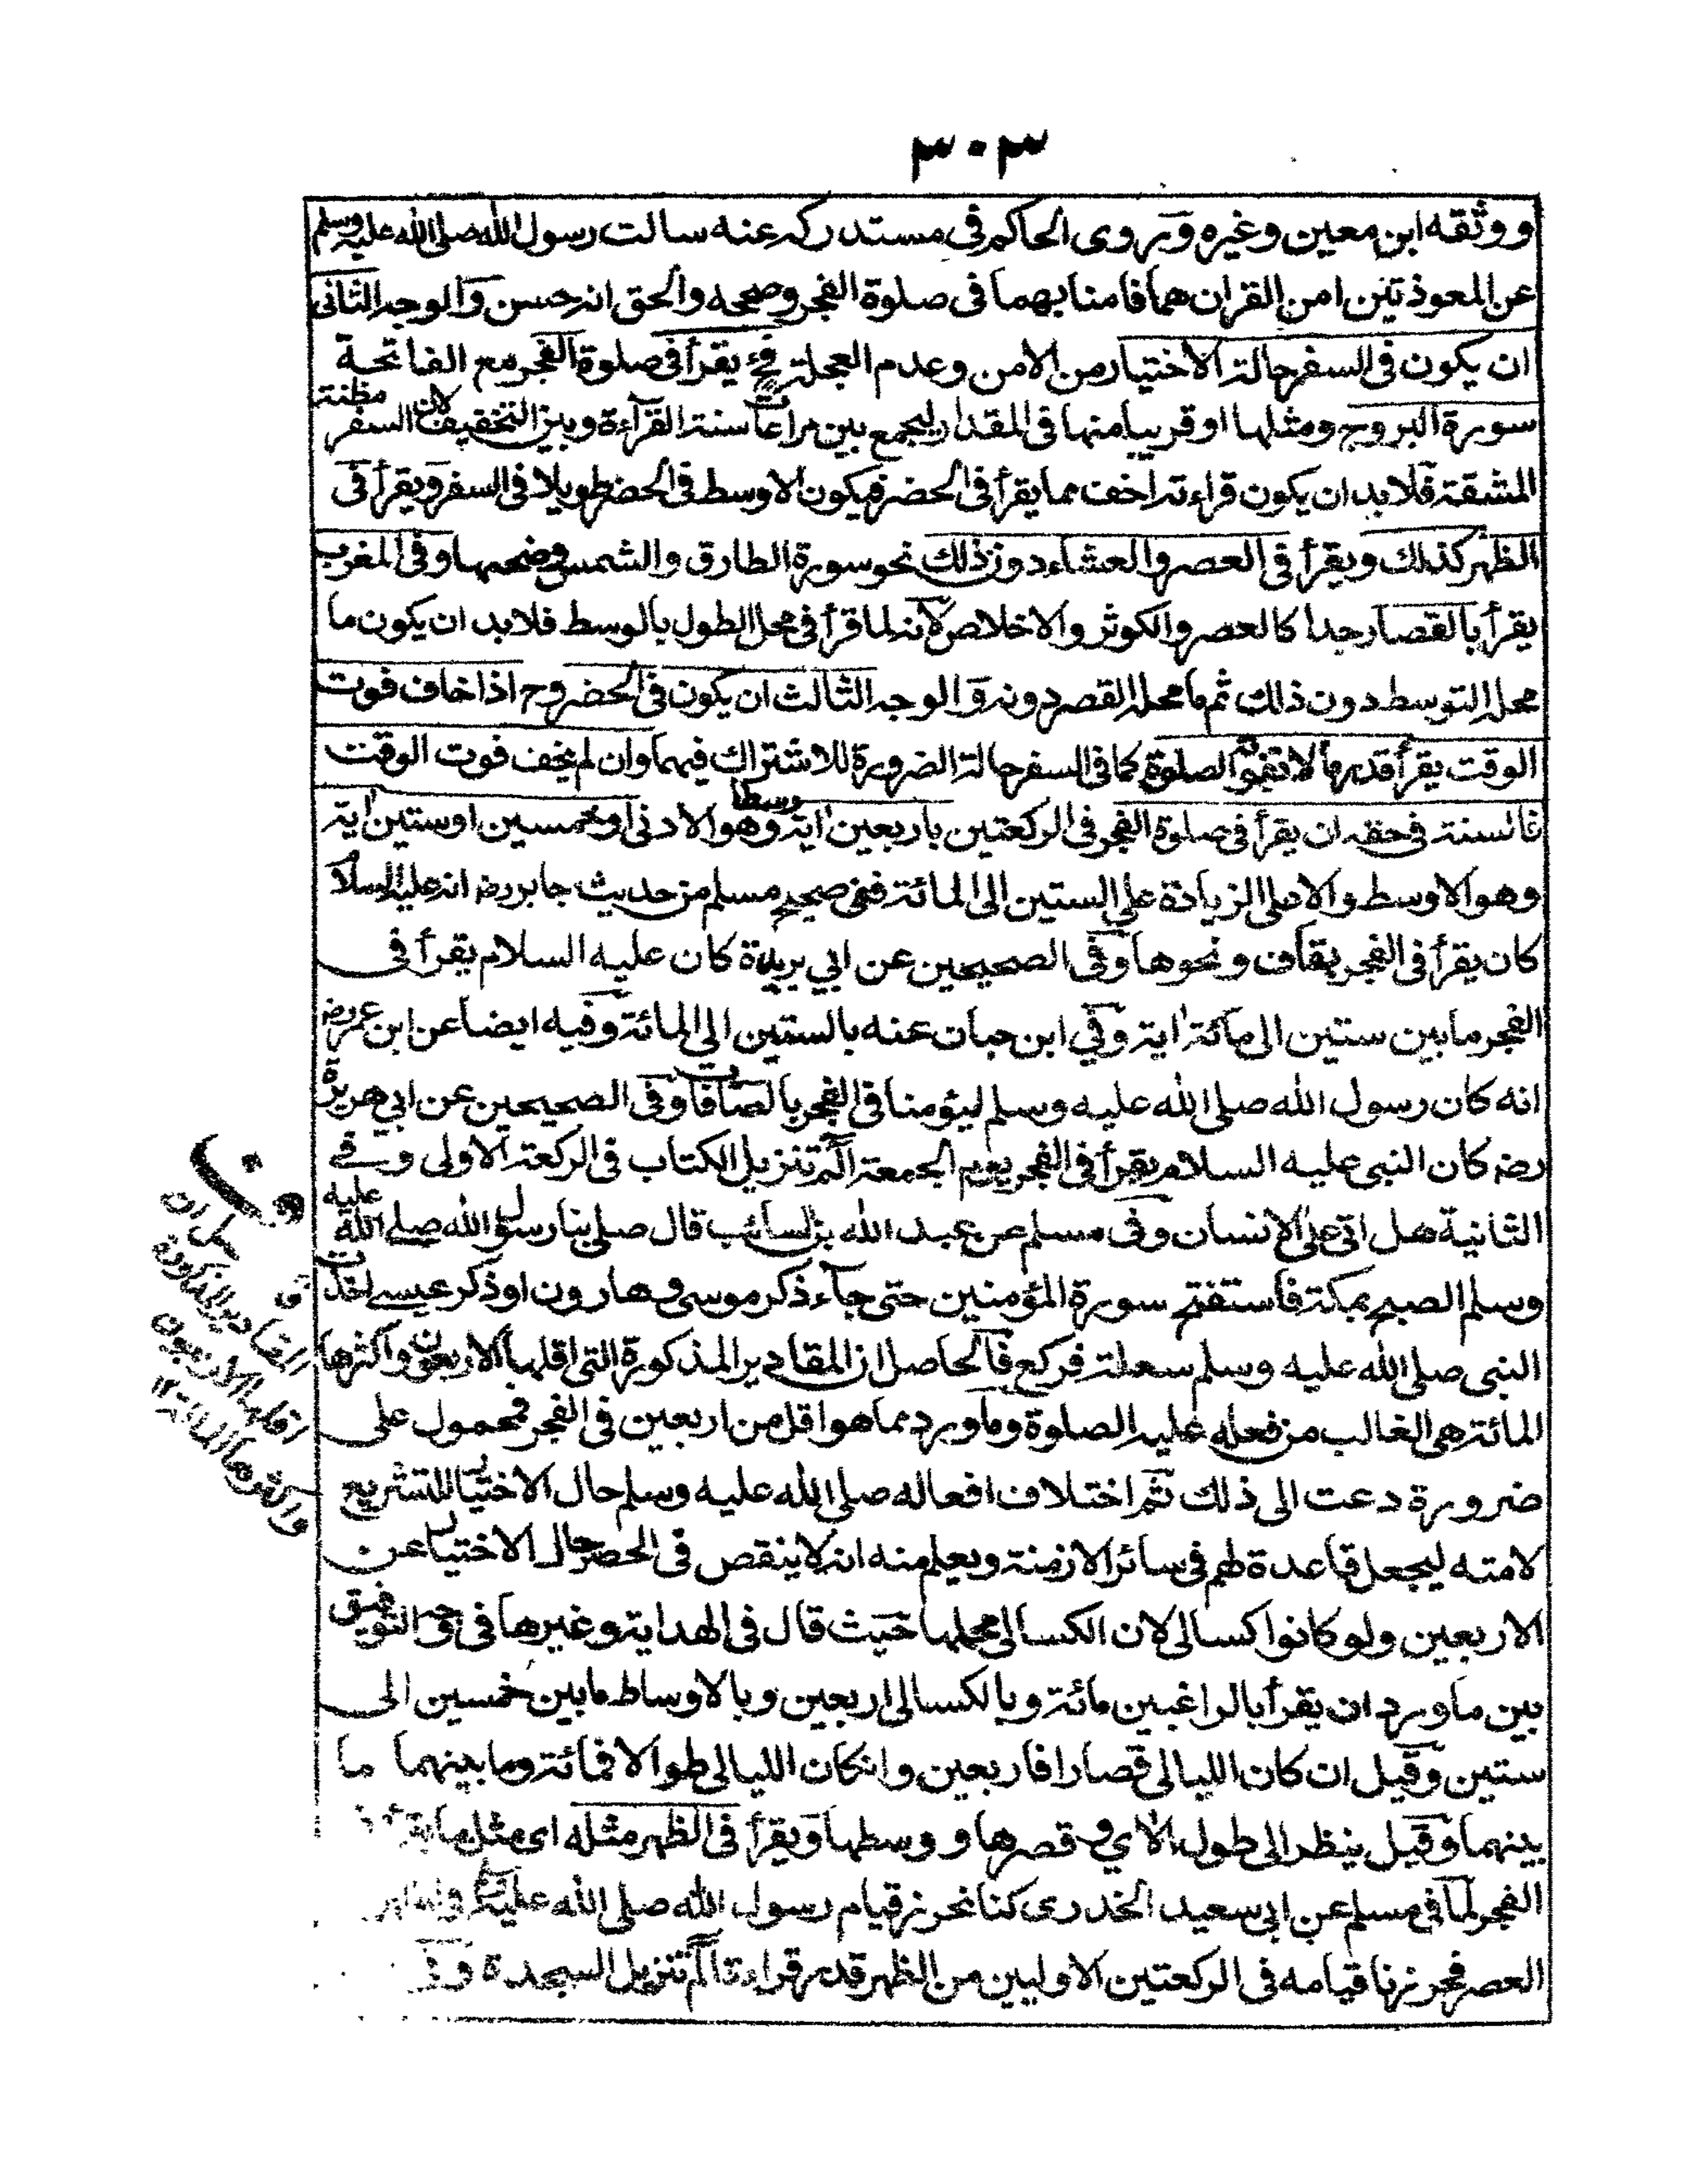 ٣٠٣
ووثقه ابن معين وغيره وروى الحاكم في مستدركه عنه سالت رسول الله صلى الله عليه وسلم
عن المعوذتين امن القران هما فامنا بهما في صلوة الفجر وصححه والحق انه حسن والوجه الثاني
ان يكون في السفر حالة الاختيار من الامن وعدم العجلة فح يقرأ في صلوة الفجر مع الفاتحة
سورة البروج ومثلها او قريبا منها في المقدار ليجمع بين مراعات سنة القرآءة وبين التخفيف لان السفر مظنة
المشقة فلا بد ان يكون قراءته اخف مما يقرأ في الحضر فيكون الاوسط في الحضر طويلا في السفر ويقرأ في
الظهر كذلك ويقرأ في العصر والعشاء دون ذلك نحو سورة الطارق والشمس وضحها وفي المغرب
يقرأ بالقصار جدا كالعصر والكوثر والاخلاص لانه لما قرأ في محل الطول بالوسط فلا بد ان يكون ما
محله التوسط دون ذلك ثم ما محله القصر دونه والوجه الثالث ان يكون في الحضر وح اذا خاف فوت
الوقت يقرأ قدر ما لا تفوته الصلوة كما في السفر حالة الضرورة للاشتراك فيهما وان لم يخف فوت الوقت
فالسنة في حقه ان يقرأ في صلوة الفجر في الركعتين باربعين اية وسطا وهو الادنى او خمسين او ستين اية
وهو الاوسط والاعلى الزيادة على الستين الى المائة ففي صحيح مسلم من حديث جابر رضـ انه عليه السلام
كان يقرأ في الفجر بقاف ونحوها وفي الصحيحين عن ابي بريدة كان عليه السلام يقرأ في
الفجر ما بين ستين الى مائة اية وفي ابن حبان عنه بالستين الى المائة وفيه ايضا عن ابن عمر رضـ
انه كان رسول الله صلى الله عليه وسلم ليؤمنا في الفجر بالصافات وفي الصحيحين عن ابي هريرة
رضـ كان النبي عليه السلام يقرأ في الفجر يوم الجمعة الم تنزيل الكتاب في الركعة الاولى وفي
الثانية هل اتى على الانسان وفي مسلم عن عبد الله بن السائب قال صلى بنا رسول الله صلى الله عليه
وسلم الصبح بمكة فاستفتح سورة المؤمنين حتى جآء ذكر موسى وهارون او ذكر عيسى اخذت
النبي صلى الله عليه وسلم سعلة فركع فالحاصل ان المقادير المذكورة التي اقلها الاربعون واكثرها
المائة هي الغالب من فعله عليه الصلوة وما ورد مما هو اقل من اربعين في الفجر فمحمول على
ضرورة دعت الى ذلك ثم اختلاف افعاله صلى الله عليه وسلم حال الاختيار للتشريع
لامته ليجعل قاعدة لهم في سائر الازمنة ويعلم منه انه لا ينقص في الحضر حال الاختيار عن
الاربعين ولو كانوا كسالى لان الكسالى محلها حيث قال في الهداية وغيرها في وجه التوفيق
بين ما ورد ان يقرأ بالراغبين مائة وبالكسالى اربعين وبالاوساط ما بين خمسين الى
ستين وقيل ان كان الليالى قصارا فاربعين وان كان الليالى طوالا فمائة وما بينهما ما
بينهما وقيل ينظر الى طول الاي وقصرها ووسطها ويقرأ في الظهر مثله اى مثل ما يقرأ
الفجر لما في مسلم عن ابي سعيد الخدرى كنا نحزر قيام رسول الله صلى الله عليه
العصر فحزرنا قيامه في الركعتين الاوليين من الظهر قدر قراءة الم تنزيل السجدة وفي
ف
ان
المقادير المذكورة
اقلها الاربعون
واكثرها المائة